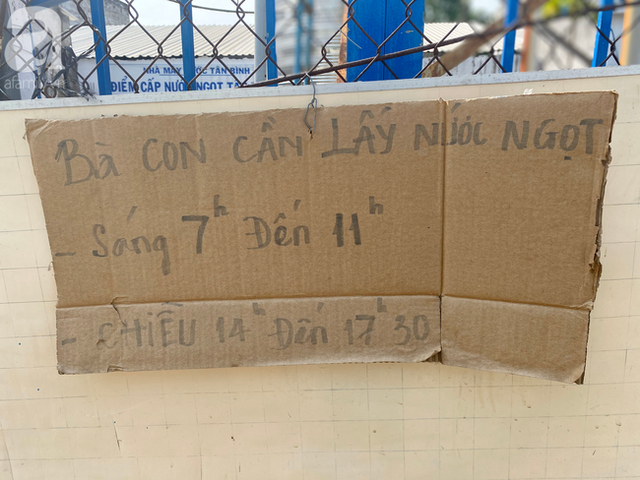 NHÀ MÁY NƯỚC TÂN BÌNH
ĐIỂM CẤP NƯỚC NGỌT
BÀ CON CẦN LẤY NƯỚC NGỌT
- Sáng 7h Đến 11h
- CHIỀU 14h Đến 17h30